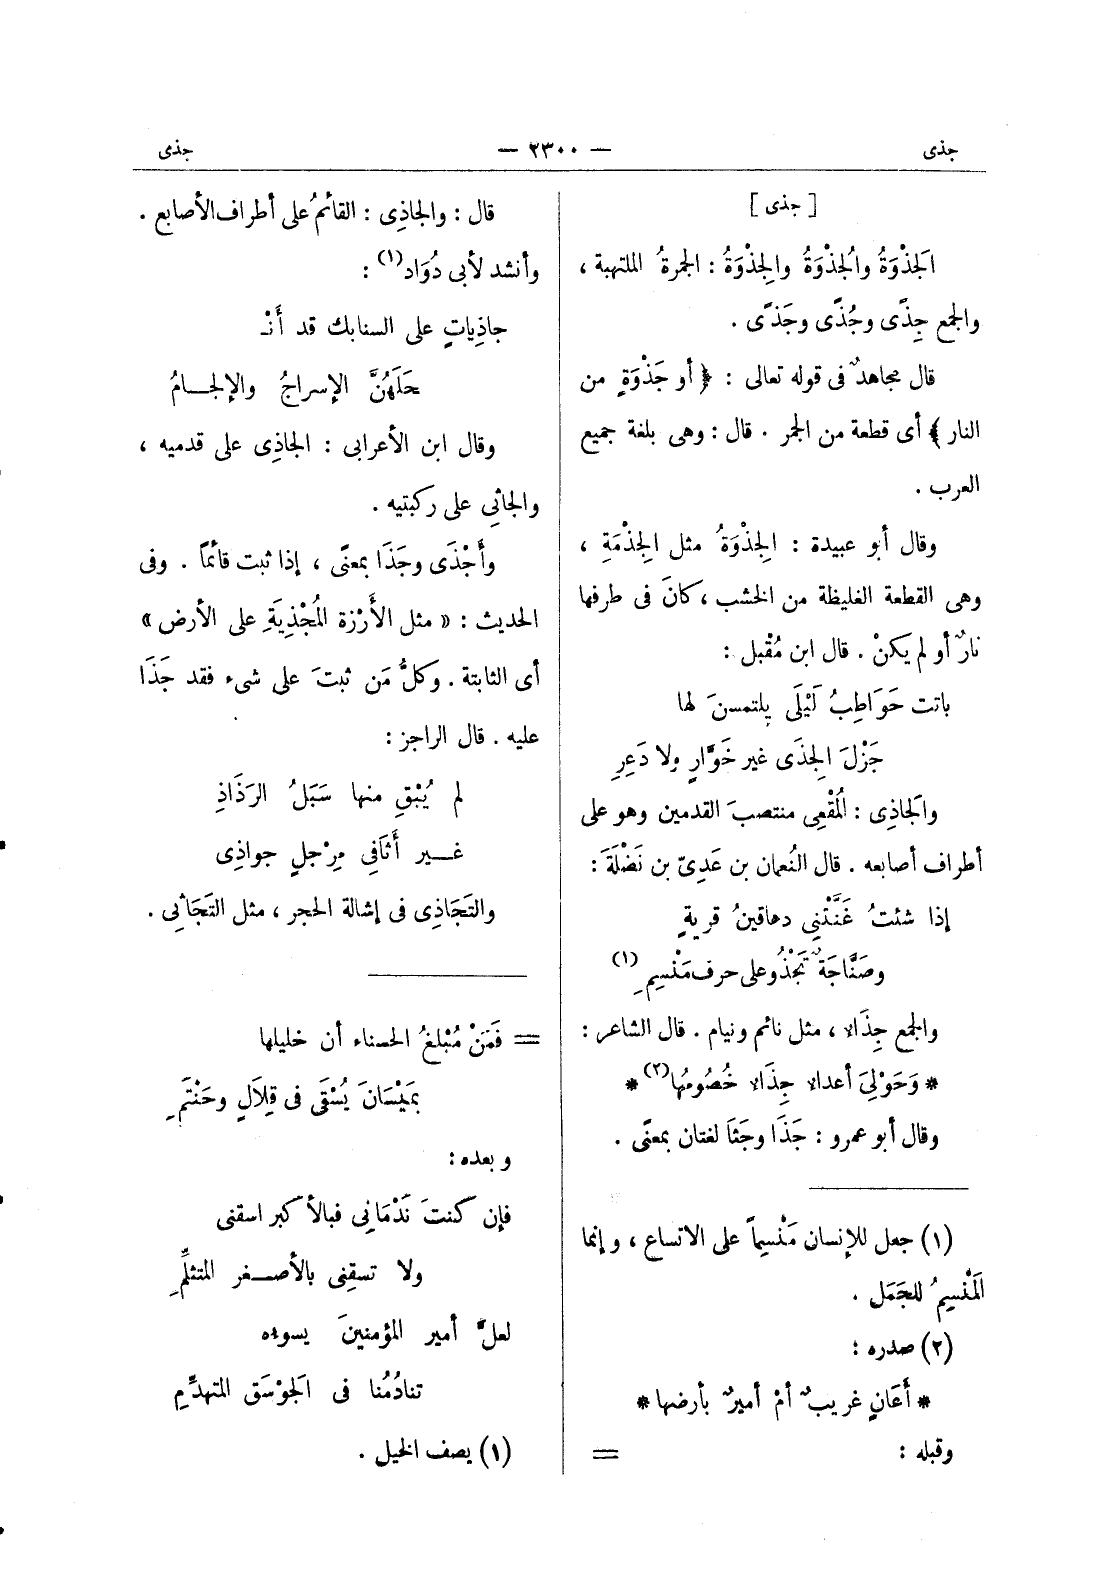 جذى — ٢٣٠٠ — جذى
[ جذى ]
الَجذْوَةُ والُجذْوَةُ والِجذْوَةُ : الجمرةُ الملتهبة ،
والجمع جِذًى وجُذًى وجَذًى .
قال مجاهدٌ فى قوله تعالى : ﴿ أو جَذْوَةٍ من
النار ﴾ أى قطعة من الجمر . قال : وهى بلغة جميع
العرب .
وقال أبو عبيدة : الِجذْوَةُ مثل الِجذْمَةِ ،
وهى القطعة الغليظة من الخشب ، كانَ فى طرفها
نارٌ أو لم يكنْ . قال ابن مُقْبل :
باتت حَوَاطِبُ لَيْلَى يلتمسنَ لها
جَزْلَ الِجذَى غير خَوَّارٍ ولا دَعِرِ
والَجاذِى : الُمْقْعِى منتصبَ القدمين وهو على
أطراف أصابعه . قال النُعمان بن عَدِىّ بن نَضْلَةَ :
إذا شئتُ غَنَّتْنِى دهاقينُ قريةٍ
وصَنَّاجَةٌ تَجْذُو على حرف مَنْسِمِ (١)
والجمع جِذَاء ، مثل نائم ونيام . قال الشاعر :
* وَحَوْلِىَ أعداء جِذَاء خُصُومُها (٢) *
وقال أبو عمرو : جَذَا وجَثَا لغتان بمعنًى .
(١) جعل للإنسان مَنْسِماً على الاتساع ، وإنما
الَمنْسِمُ للجَمَل .
(٢) صدره :
* أَعَانٍ غريبٌ أمْ أميرٌ بأرضها *
وقبله : =
قال : والجاذِى : القائمُ على أطراف الأصابع .
وأنشد لأبى دُوَاد (١) :
جاذِياتٍ على السنابك قد أَنْـ
حَلَهُنَّ الإسراجُ والإلجــامُ
وقال ابن الأعرابى : الجاذِى على قدميه ،
والجاثِى على ركبتيه .
وأَجْذَى وجَذَا بمعنًى ، إذا ثبت قائماً . وفى
الحديث : « مثل الأَرْزة الُمجْذِيَةِ على الأرض »
أى الثابتة . وكلُّ مَن ثبتَ على شىء فقد جَذَا
عليه . قال الراجز :
لم يُبْقِ منها سَبَلُ الرَذَاذِ
غــير أَثَافِى مِرْجلٍ جواذِى
والتَجَاذِى فى إشالة الحجر ، مثل التَجَاثِى .
= فَمَنْ مُبْلغُ الحسناء أن خليلها
بمَيْسَانَ يُسْقَى فى قِلَالٍ وحَنْتَمِ
وبعده :
فإن كنتَ نَدْمَانِى فبالأكبر اسقنى
ولا تسقِنى بالأصــغر المتثلِّمِ
لعلَّ أمير المؤمنينَ يسوءه
تنادُمُنا فى الَجوْسَق المتهدِّمِ
(١) يصف الخيل .